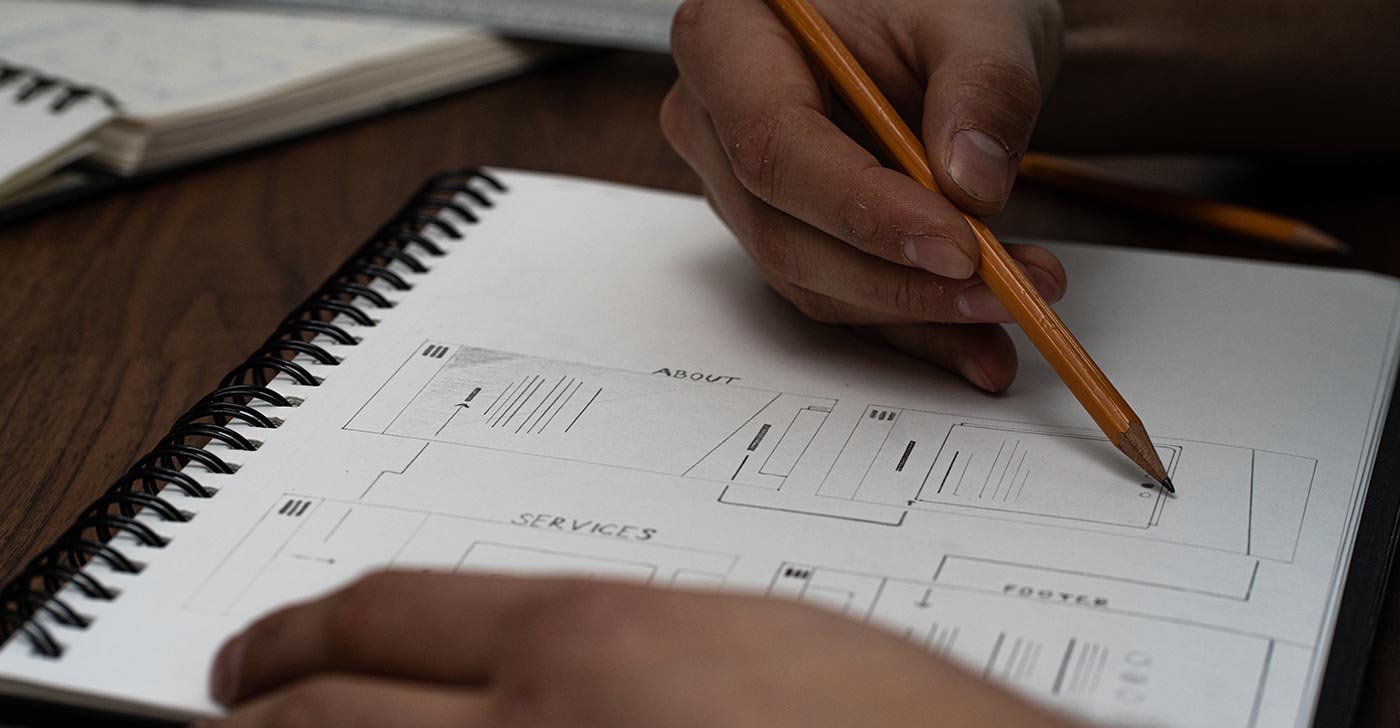 ABOUT
SERVICES
FOOTER